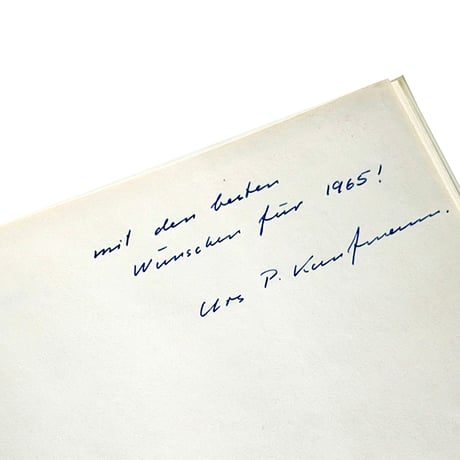 mit den besten
Wünschen für 1965!
Urs P. Kaufmann.